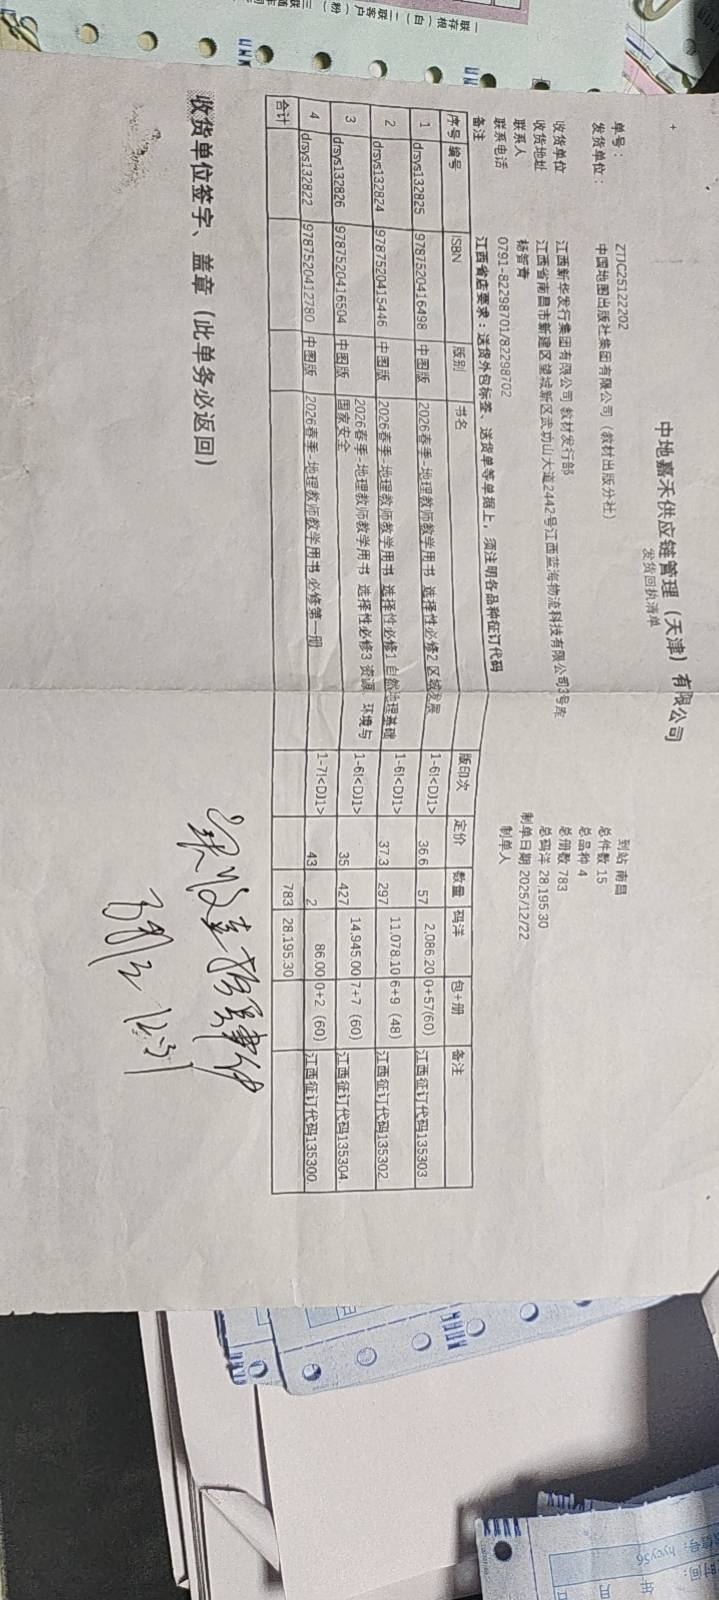 中地嘉禾供应链管理（天津）有限公司
发货回执清单
单号： ZTJC25122202
发货单位： 中国地图出版社集团有限公司（教材出版分社）
到站 南昌
总件数 15
收货单位 江西新华发行集团有限公司 教材发行部
总品种 4
收货地址 江西省南昌市新建区望城新区武功山大道2442号江西蓝海物流科技有限公司3号库
总册数 783
联系人 杨智青
总码洋 28,195.30
联系电话 0791-82298701/82298702
制单日期 2025/12/22
制单人
备注 江西省店要求：送货外包标签、送货单等单据上，须注明各品种征订代码
序号 编号 ISBN 版别 书名 版印次 定价 数量 码洋 包+册 备注
1 drsys132825 9787520416498 中图版 2026春季-地理教师教学用书 选择性必修2 区域发展 1-6!<DJ1> 36.6 57 2,086.20 0+57(60) 江西征订代码135303
2 drsys132824 9787520415446 中图版 2026春季-地理教师教学用书 选择性必修1 自然地理基础 1-6!<DJ1> 37.3 297 11,078.10 6+9 (48) 江西征订代码135302
3 drsys132826 9787520416504 中图版 2026春季-地理教师教学用书 选择性必修3 资源、环境与国家安全 1-6!<DJ1> 35 427 14,945.00 7+7 (60) 江西征订代码135304.
4 drsys132822 9787520412780 中图版 2026春季-地理教师教学用书 必修第一册 1-7!<DJ1> 43 2 86.00 0+2 (60) 江西征订代码135300.
合计 783 28,195.30
收货单位签字、盖章（此单务必返回）
12.31
hycy56